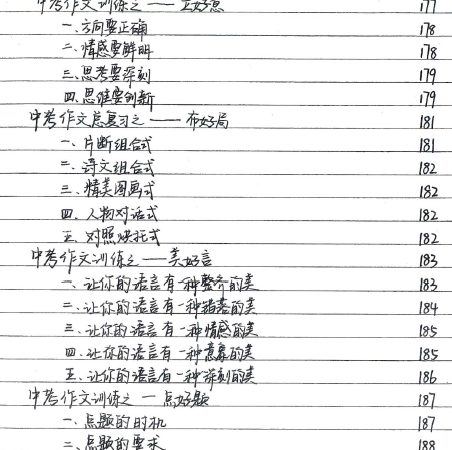 中考作文训练之——立好意 177
一.方向要正确 178
二.情感要鲜明 178
三.思考要深刻 179
四.思维要创新 179
中考作文总复习之——布好局 181
一、片断组合式 181
二、诗文组合式 182
三、精美图画式 182
四、人物对话式 182
五、对照烘托式 182
中考作文训练之——美好言 183
一、让你的语言有一种整齐的美 183
二、让你的语言有一种错落的美 184
三、让你的语言有一种情感的美 185
四、让你的语言有一种意象的美 185
五、让你的语言有一种深刻的美 186
中考作文训练之—点好题 187
一、点题的时机 187
二、点题的要求 188